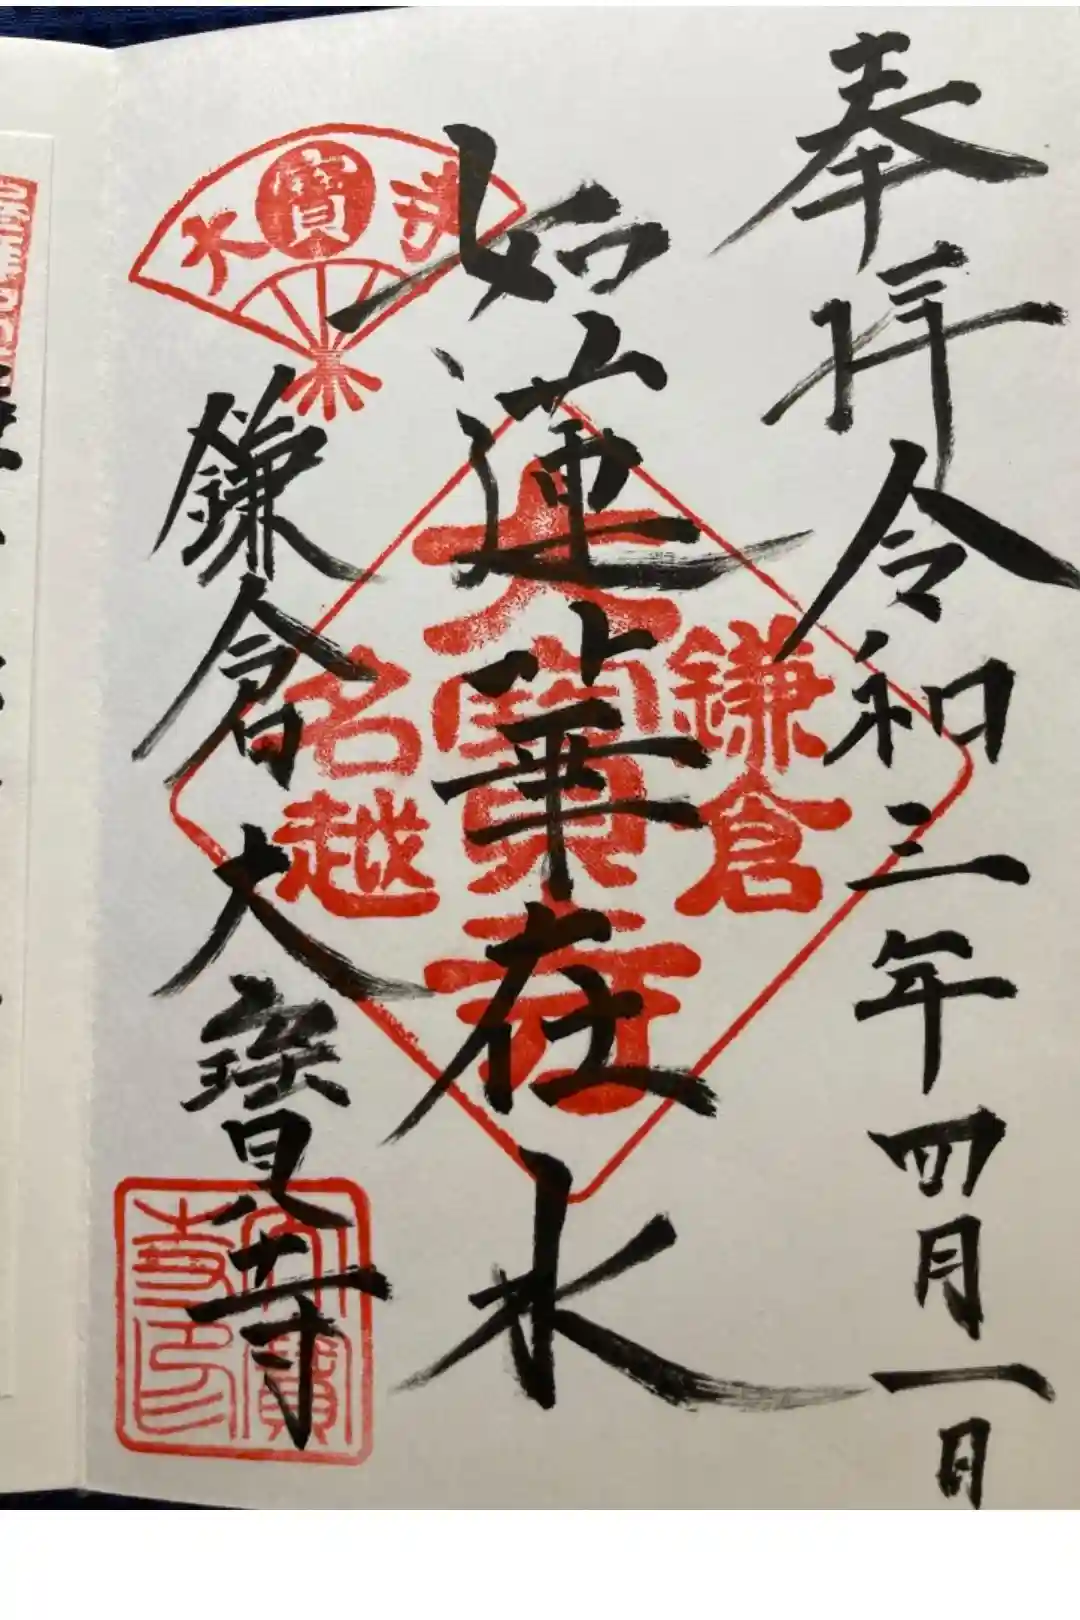 奉拝 令和三年四月一日
如蓮華在水
鎌倉 大寳寺
鎌倉
大寳寺
名越
寳
大寳
寺印